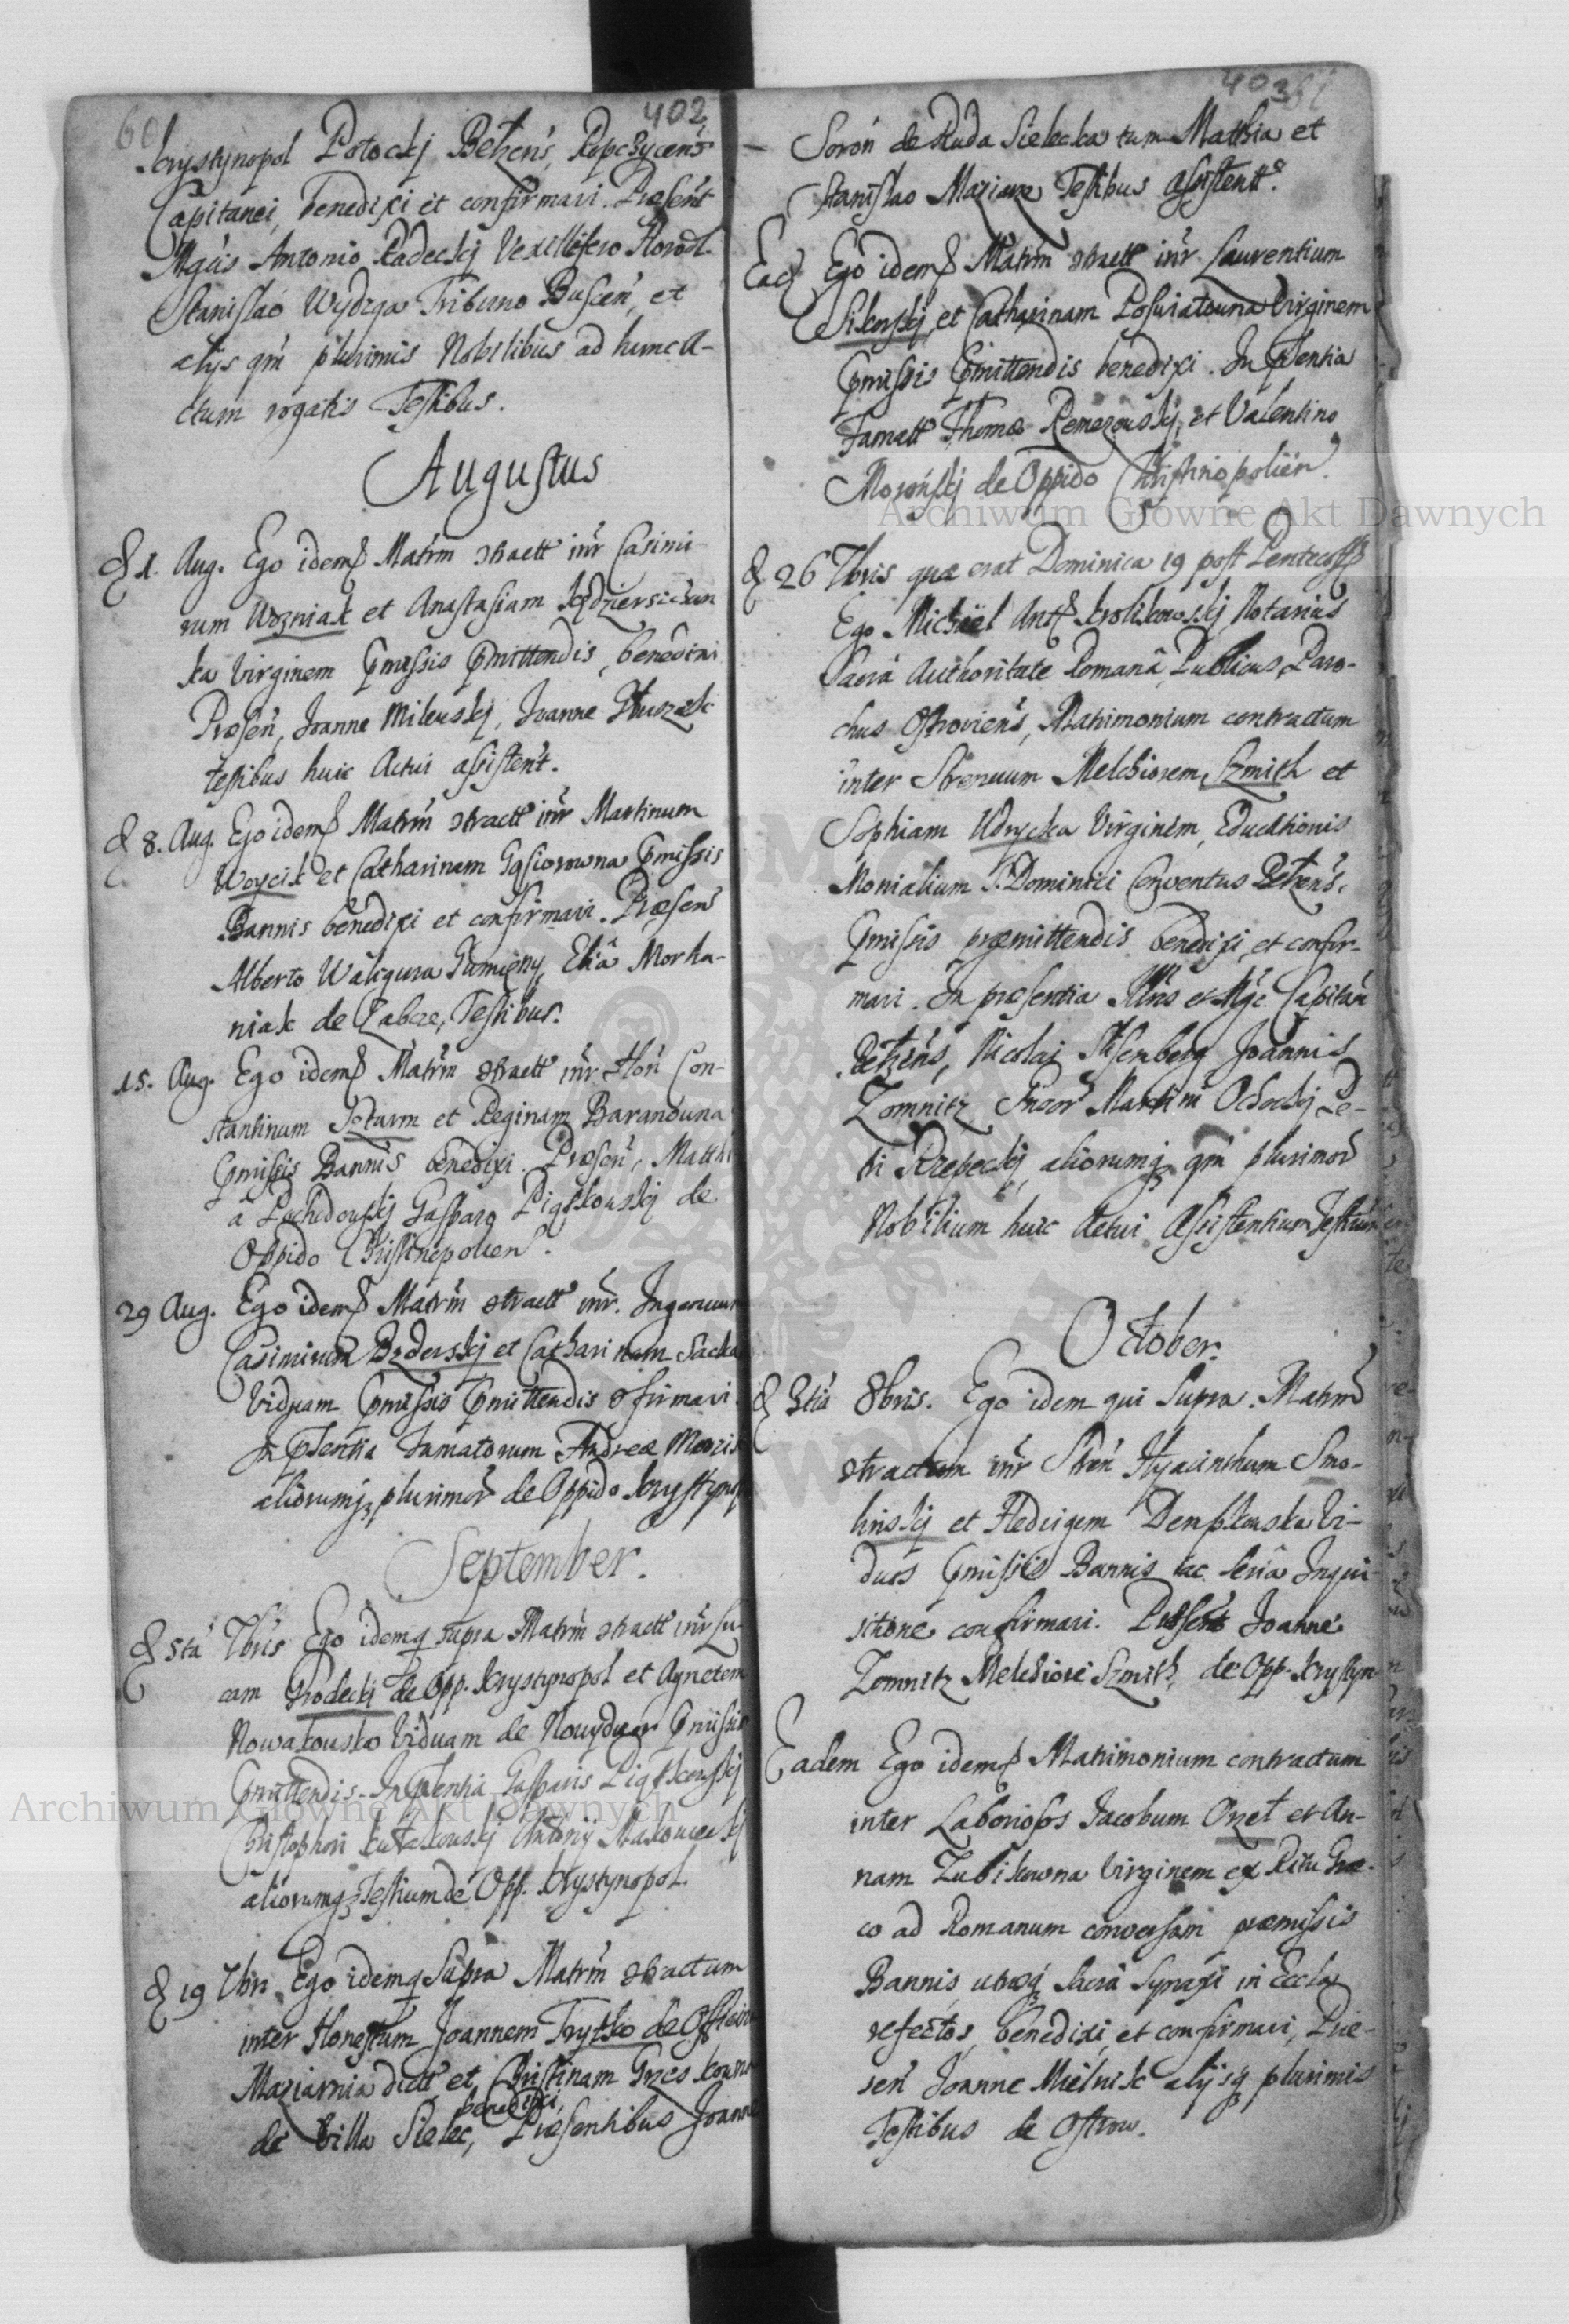 60
402
Krystynopol Potockj Belzens, Ropczycens
Capitanei, benedixi et confirmavi. Præsent
Mgcis Antonio Radeckj Vexillifero Horodl.
Stanislao Wydzga Tribuno Buscen, et
alijs qm plurimis Nobilibus ad hunc A-
ctum rogatis Testibus.
Augustus
d 1. Aug. Ego idem Matrm ctractt inr Casimi-
rum Wozniak et Anastasiam
ka Virginem pmissis pmittendis, benedixi
Præsen, Joanne Mileuskj, Joanne
testibus huic Actui assistent.
d 8. Aug. Ego idem Matrm ctractt inr Martinum
Woycik et Catharinam Gąsiorowna pmissis
Bannis benedixi et confirmavi. Præsens
Alberto Waligura Gumięny, Eliâ Morha-
niak de Zabcze, Testibus.
15. Aug. Ego idem Matrm ctractt inr Hon Con-
stantinum et Reginam Baranouna
pmissis Bannis benedixi. Præsen, Matthi
a Gasparo Piątkouskj de
Oppido Christinopolien.
29 Aug. Ego idem Matrm ctractt inr. Ingenuum
Casimirum et Catharinam Sacka
Viduam pmissis pmittendis cfirmavi.
In psentia Famatorum Andreæ
aliorumq plurimor de Oppido Krystynop
September.
d 5ta 7bris Ego idemq supra Matrm ctractt inr Lu-
cam Grodecki de Opp. Krystynopol et Agnetem
Nowakouska Viduam de Nouydwor pmissis
pmittendis. In psentia Gasparis Piątkouskj
Christophori Antonij
aliorumq Testium de Opp. Krystynopol.
d 19 7bris Ego idemq Supra Matrm ctractum
inter Honestum Joannem Trytko de Officina
Maziarnia dict et Christinam
benedixi,
de Villa Sielec, Præsentibus Joanne
403
Soron de Ruda Sielecka tum Matthia et
Stanislao Maziarz Testibus assistentt.
Ead Ego idem Matrm ctractt inr Laurentium
Sikorskj et Catharinam Virginem
pmissis pmittendis benedixi. In psentia
Famatt Thomæ et Valentino
de Oppido Christinopolien.
d 26 7bris quæ erat Dominica 19 post Pentecost
Ego Michael Ant Krolikowskj Notarius
Sacrâ Authoritate Romanâ Publicus, Paro-
chus Ostroviens, Matrimonium contractum
inter Strenuum Melchiorem Szmith et
Sophiam Udrycka Virginem, Educationis
Monialium S. Dominici Conventus Belzens,
pmissis præmittendis benedixi, et confir-
mavi. In præsentia Illris et Mgc Capitan
Belzens, Nicolai Joannis
Zomnitz Martini Ochockj Pe-
tri aliorumq qm plurimor
Nobilium huic Actui Assistentium Testium
October.
d 3tia 8bris. Ego idem qui Supra. Matrm
ctractum inr Stren Hyacinthum Smo-
linskj et Heduigem Viduos pmissis Bannis ac seriâ Inqui-
sitione confirmavi. Præsent Joanne
Zomnitz Melchiore Szmith, de Opp. Krystyn
Eadem Ego idem Matrimonium contractum
inter Laboriosos Jacobum Orzeł et An-
nam Zubikowna Virginem ex Ritu Græ-
co ad Romanum conversam præmissis
Bannis, utrosq Sacrâ Synaxi in Eccla
refectos, benedixi, et confirmavi, Præ-
sen Joanne Mielnik alijsq plurimis
Testibus de Ostrow.
Archiwum Główne Akt Dawnych
Archiwum Główne Akt Dawnych